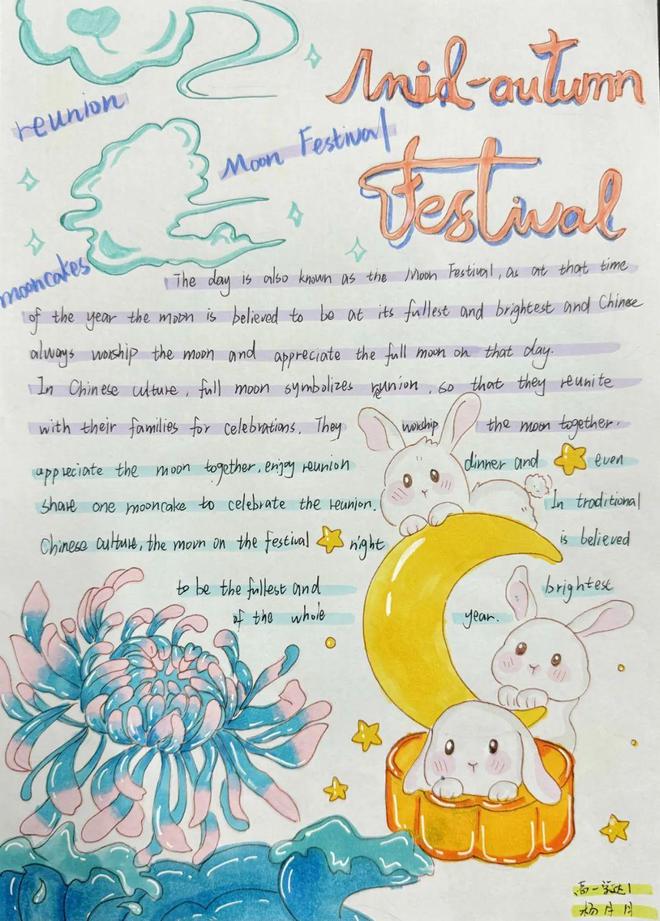 mid-autumn
Festival
reunion
Moon Festival
mooncakes
The day is also known as the Moon Festival, as at that time
of the year the moon is believed to be at its fullest and brightest and Chinese
always worship the moon and appreciate the full moon on that day.
In Chinese culture, full moon symbolizes reunion, so that they reunite
with their families for celebrations. They worship the moon together.
appreciate the moon together, enjoy reunion dinner and even
share one mooncake to celebrate the reunion. In traditional
Chinese culture, the moon on the festival night is believed
to be the fullest and brightest
of the whole year.
高一
杨月月